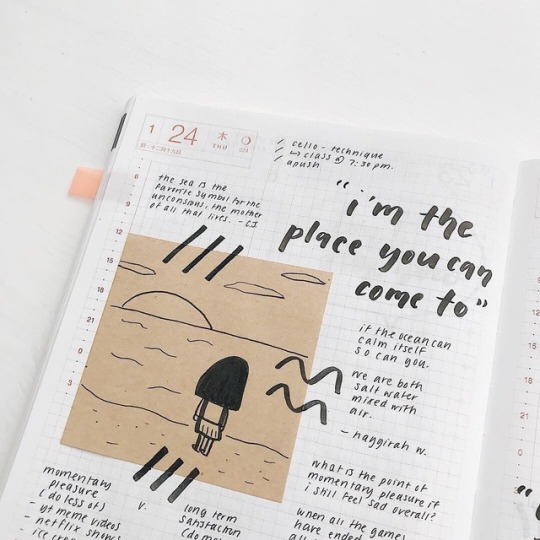 1 24 木
THU 024
旧・十二月十九日
cello - technique
↳ class @ 7:30 pm.
apush
the sea is the
favorite symbol for the
unconsious, the mother
of all that lives. - CJ
"i'm the
place you can
come to"
if the ocean can
calm itself
so can you.
we are both
salt water
mixed with
air.
- nayyirah w.
what is the point of
momentary pleasure if
i still feel sad overall?
when all the games
have ended
momentary
pleasure
(do less of)
- yt meme videos
- netflix shows
- ice cream
v.
long term
satisfaction
(do more
6
9
12
15
18
21
0
3